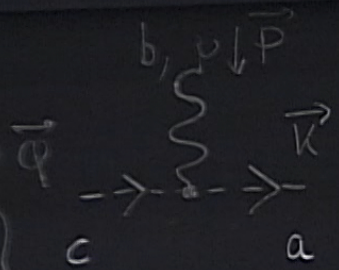 b, ν ↓ p⃗
q⃗ k⃗
c a